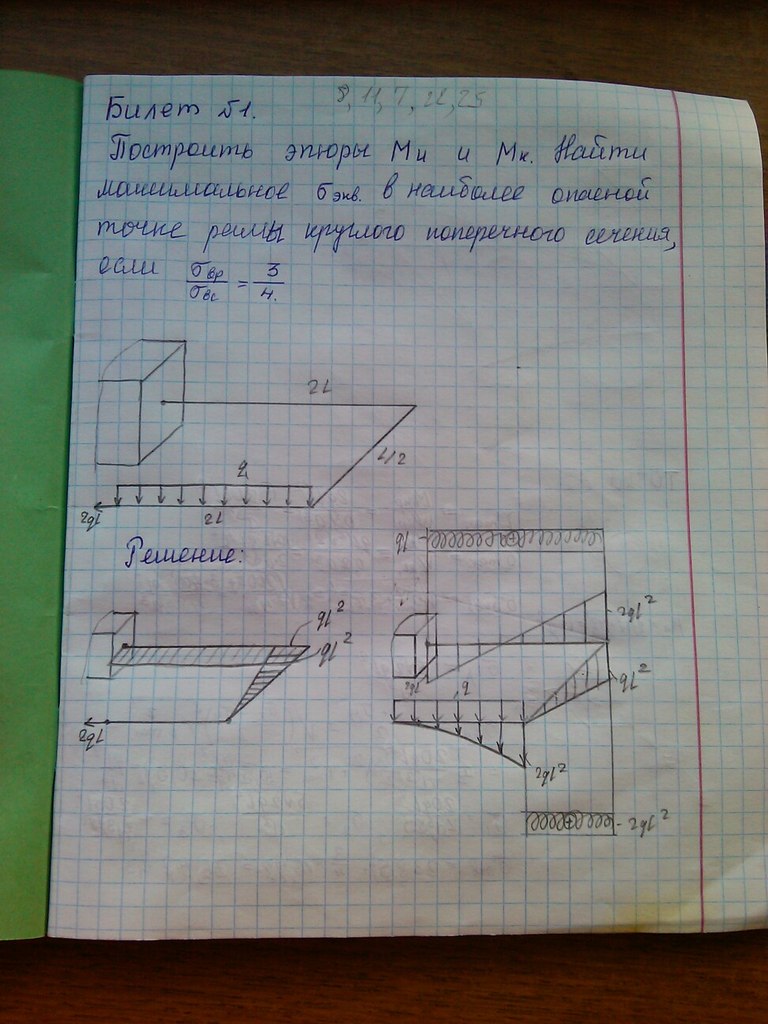 8, 11, 7, 21, 25
Билет №1.
Построить эпюры Mи и Mк. Найти
максимальное σэкв. в наиболее опасной
точке рамы круглого поперечного сечения,
если σвр/σвс = 3/4.
2l
L/2
q
2ql
2l
Решение:
ql
ql²
ql²
2ql
2ql²
ql²
2ql
q
2ql²
2ql²